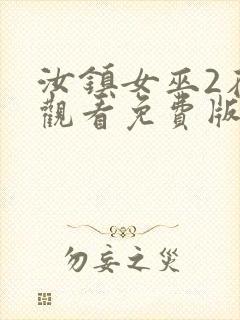 汝鎮女巫2
觀看免費版
勿妄之災